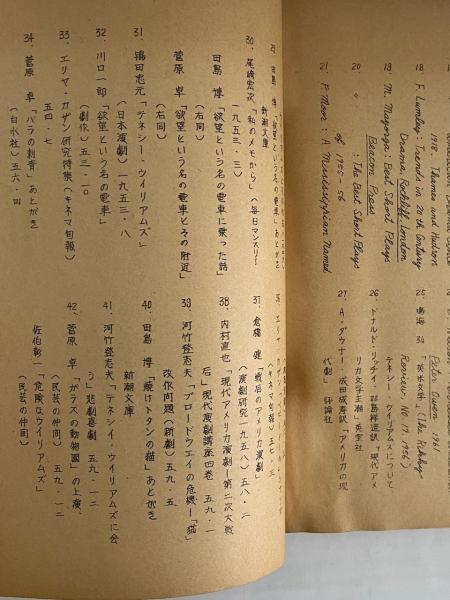 1978. Thames and Hudson
18. F. Lumley: Trends in 20th Century
Drama, Rockliff, London
19. M. Mayorga: Best Short Plays
Beacon Press
20. 〃 : The Best Short Plays
of 1955-56
21. P. Moor: A Mississippian Named
Peter Owen 1961
25. 鳴海 弘
"英米文学" (The Rikkyo
Review, No 17, 1956)
テネシー・ウイリアムズについて
26. ドナルド・リッチイ
現代アメ
リカ文学主潮」英宝社
27. A・ダウナー 成田成寿訳「アメリカの現
代劇」 評論社
29. 田島 博「欲望という名の電車」あとがき
新潮文庫
30. 尾崎宏次「私のメモから」(毎日マンスリー
一九五三・三)
田島 博「欲望という名の電車に乗った話」
(右同)
菅原 卓「欲望という名の電車とその附近」
(右同)
31. 鳴田忠元「テネシー・ウイリアムズ」
(日本演劇)一九五三・八
32. 川口一郎「欲望という名の電車」
(劇作)五三・一〇
33. エリヤ・カザン研究特集(キネマ旬報)
五四・七
34. 菅原 卓「バラの刺青」あとがき
(白水社)五六・四
(キネマ旬報)五七・三
37. 倉橋 健「戦后のアメリカ演劇」
(演劇研究一九五八)五八・二
38. 内村直也「現代アメリカ演劇ー第二次大戦
后」現代演劇講座四巻 五九・一
39. 河竹登志夫「ブロードウエイの危機ー「猫」
改作問題(新劇)五九・五
40. 田島 博「焼けトタンの猫」あとがき
新潮文庫
41. 河竹登志夫「テネシイ・ウイリアムズに会
う」悲劇喜劇 五九・一二
42. 菅原 卓「ガラスの動物園」の上演
(民芸の仲間) 五九・一二
佐伯彰一「危険なウイリアムズ」
(民芸の仲間)